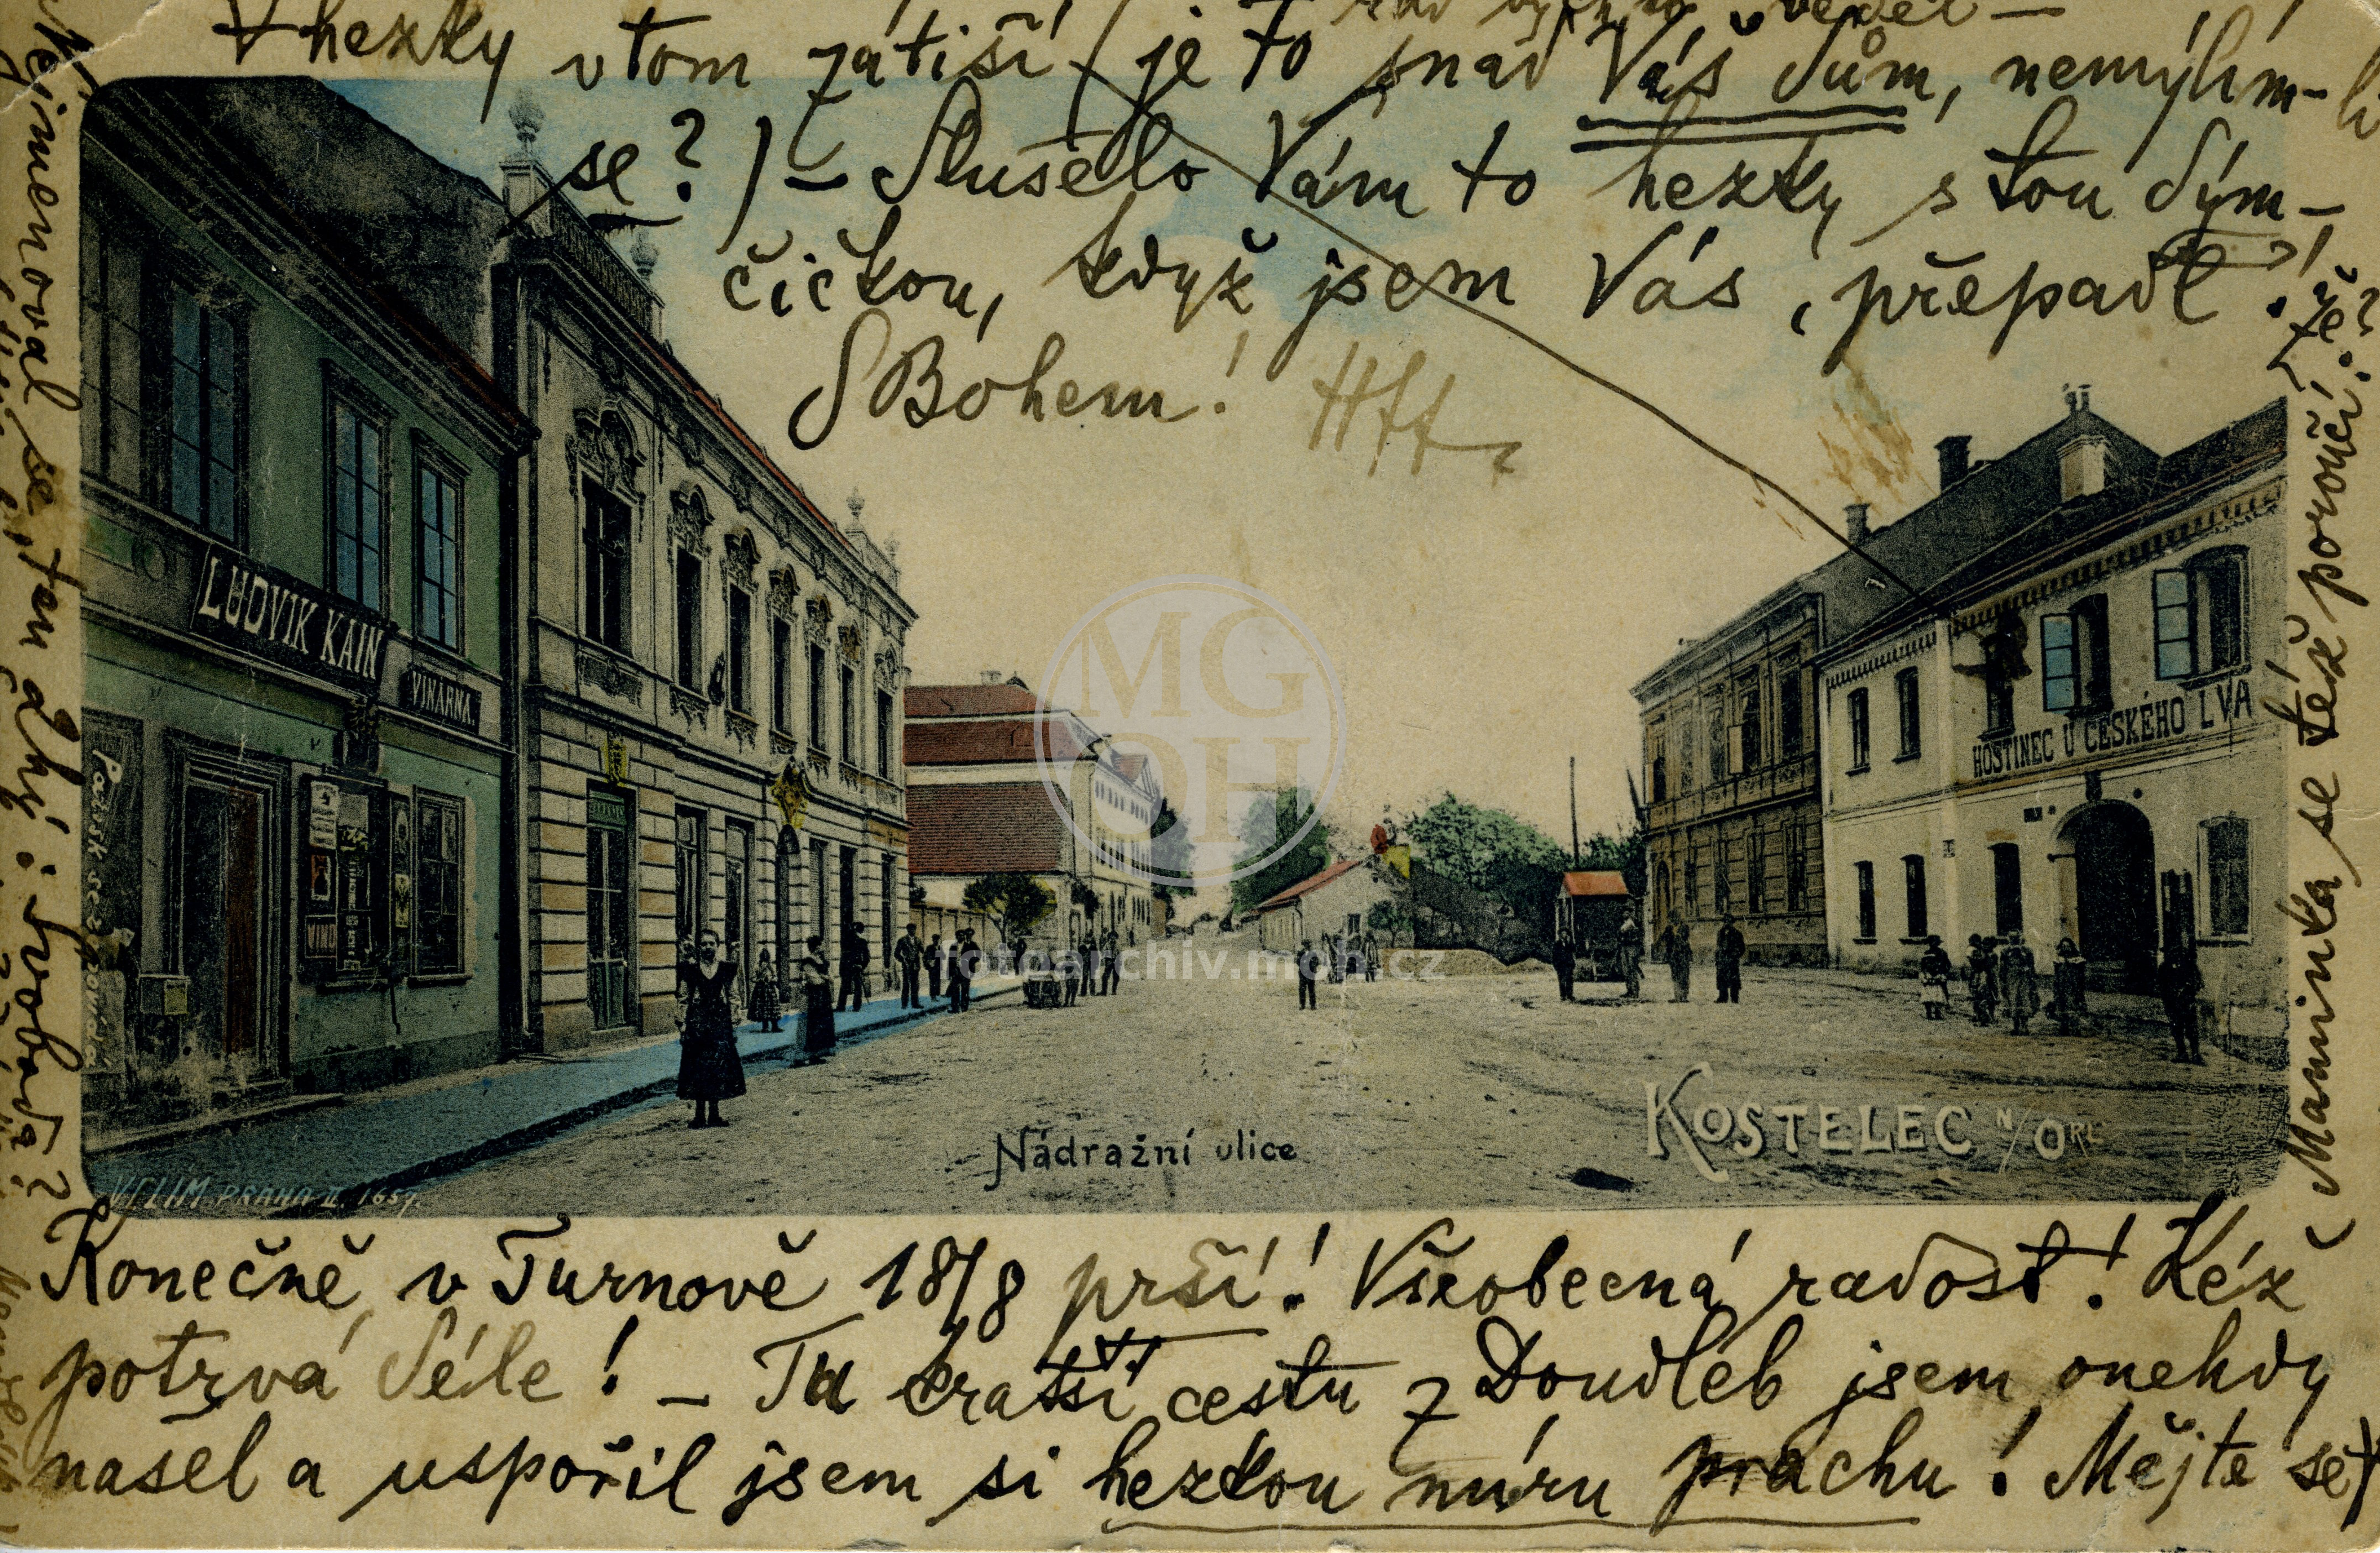 Konečně v Turnově 18/8 prší! Všeobecná radost! Kéž
potrvá déle! – Tu kratší cestu z Doudleb jsem onehdy
našel a uspořil jsem si hezkou núru prachu! Mějte se
hezky v tom zátiší (je to snad Váš dům, nemýlím-li
se?) – Slušelo Vám to hezky s tou dým-
čičkou, když jsem Vás „přepadl"!
S Bohem!
Maminka se též poroučí.
Nejmenoval se ten
LUDVIK KAIN
VINÁRNA.
VINO
HOSTINEC U ČESKÉHO LVA
MG
OH
fotoarchiv.mgh.cz
Nádražní ulice
KOSTELEC N/ORL
VELIM PRAHA II. 1657.